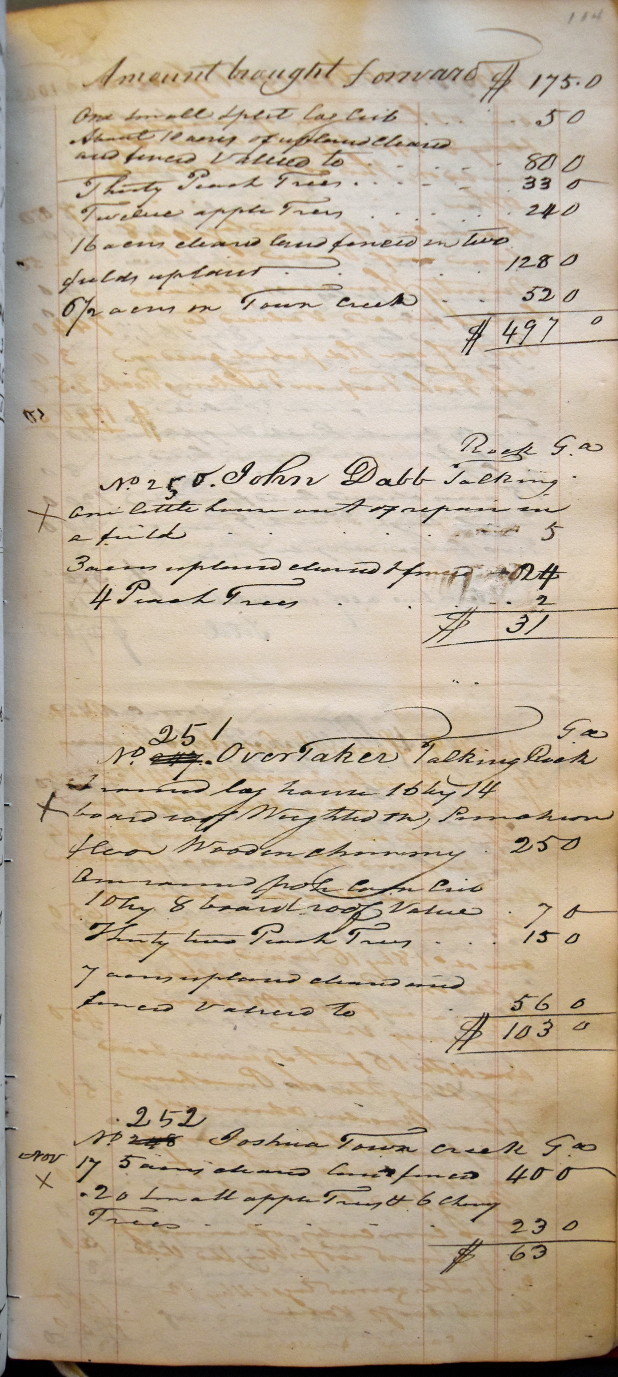 114
Amount brought forward $ 175.0
One small split Log Crib . . . 5 0
About 10 acres of upland cleared
and fenced Valued to . . . . . 80 0
Thirty Peach Trees . . . . . 33 0
Twelve apple Trees . . . . . 24 0
16 acres cleared land fenced in two
fields upland . . . . 128 0
6 1/2 acres on Town Creek . . 52 0
$ 497 0
Rock Ga
No 250. John Dabb Talking
X One little house out of repair in
a field . . . . . 5
3 acres upland cleared & fenced 24
4 Peach Trees . . . . . 2
$ 31
251 Ga
No. OverTaker Talking Rock
1 round log house 16 by 14
X board roof Weighted on, Punchion
floor Wooden chimney . 25 0
One round pole Corn Crib
10 by 8 board roof Value . 7 0
Thirty two Peach Trees . . . 15 0
7 acres upland cleared and
fenced Valued to 56 0
$ 103 0
252
No 248 Joshua Town creek Ga
Nov
17 5 acres cleared land fenced 40 0
X 20 Small apple Trees & 6 Cherry
Trees . . . . . 23 0
$ 63